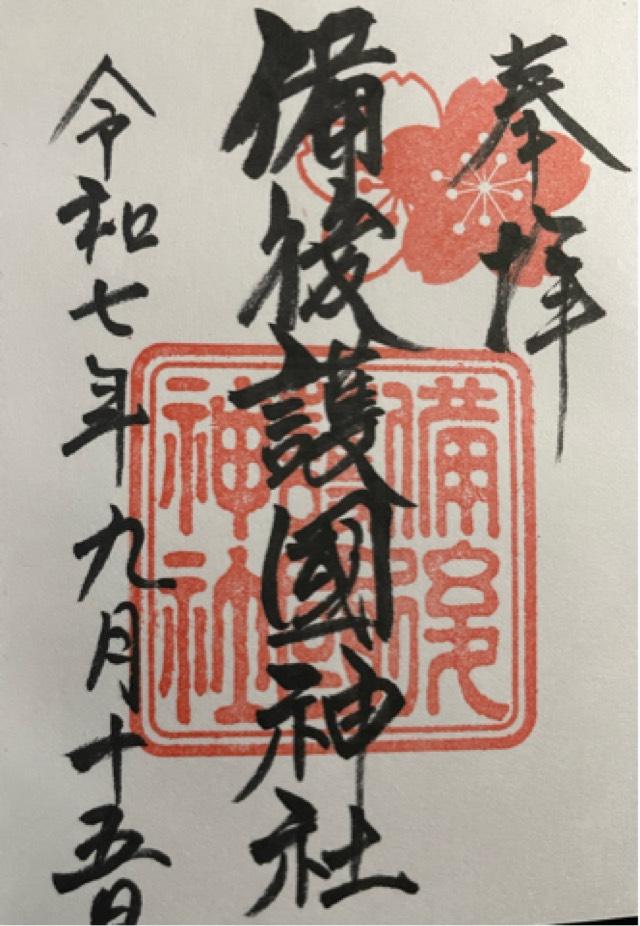 奉拝
備後護國神社
令和七年九月十五日
備後
護國
神社